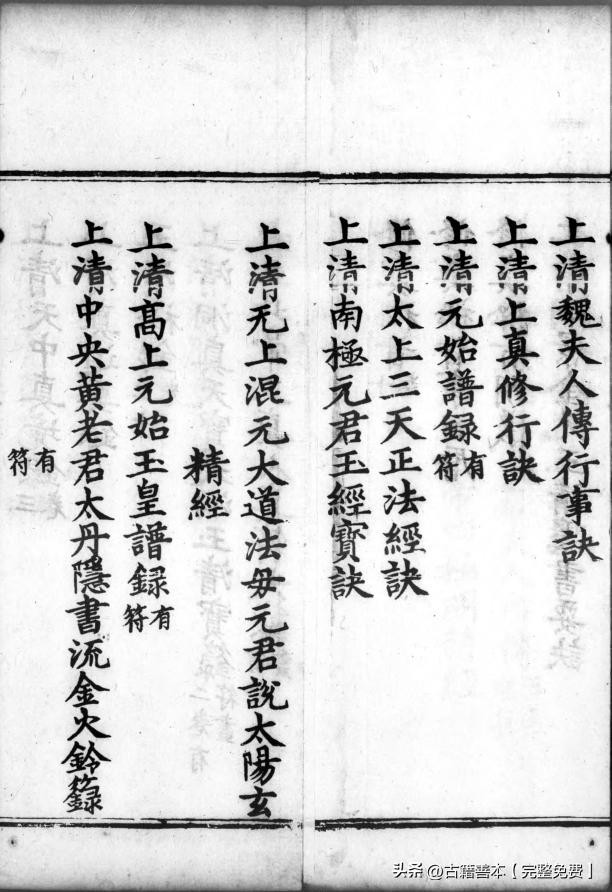 上清魏夫人傳行事訣
上清上真修行訣
上清元始譜録有符
上清太上三天正法經訣
上清南極元君玉經寶訣
上清无上混元大道法母元君說太陽玄
精經
上清髙上元始玉皇譜録有符
上清中央黄老君太丹隱書流金火鈴籙
有符
头条 @古籍善本【完整免费】